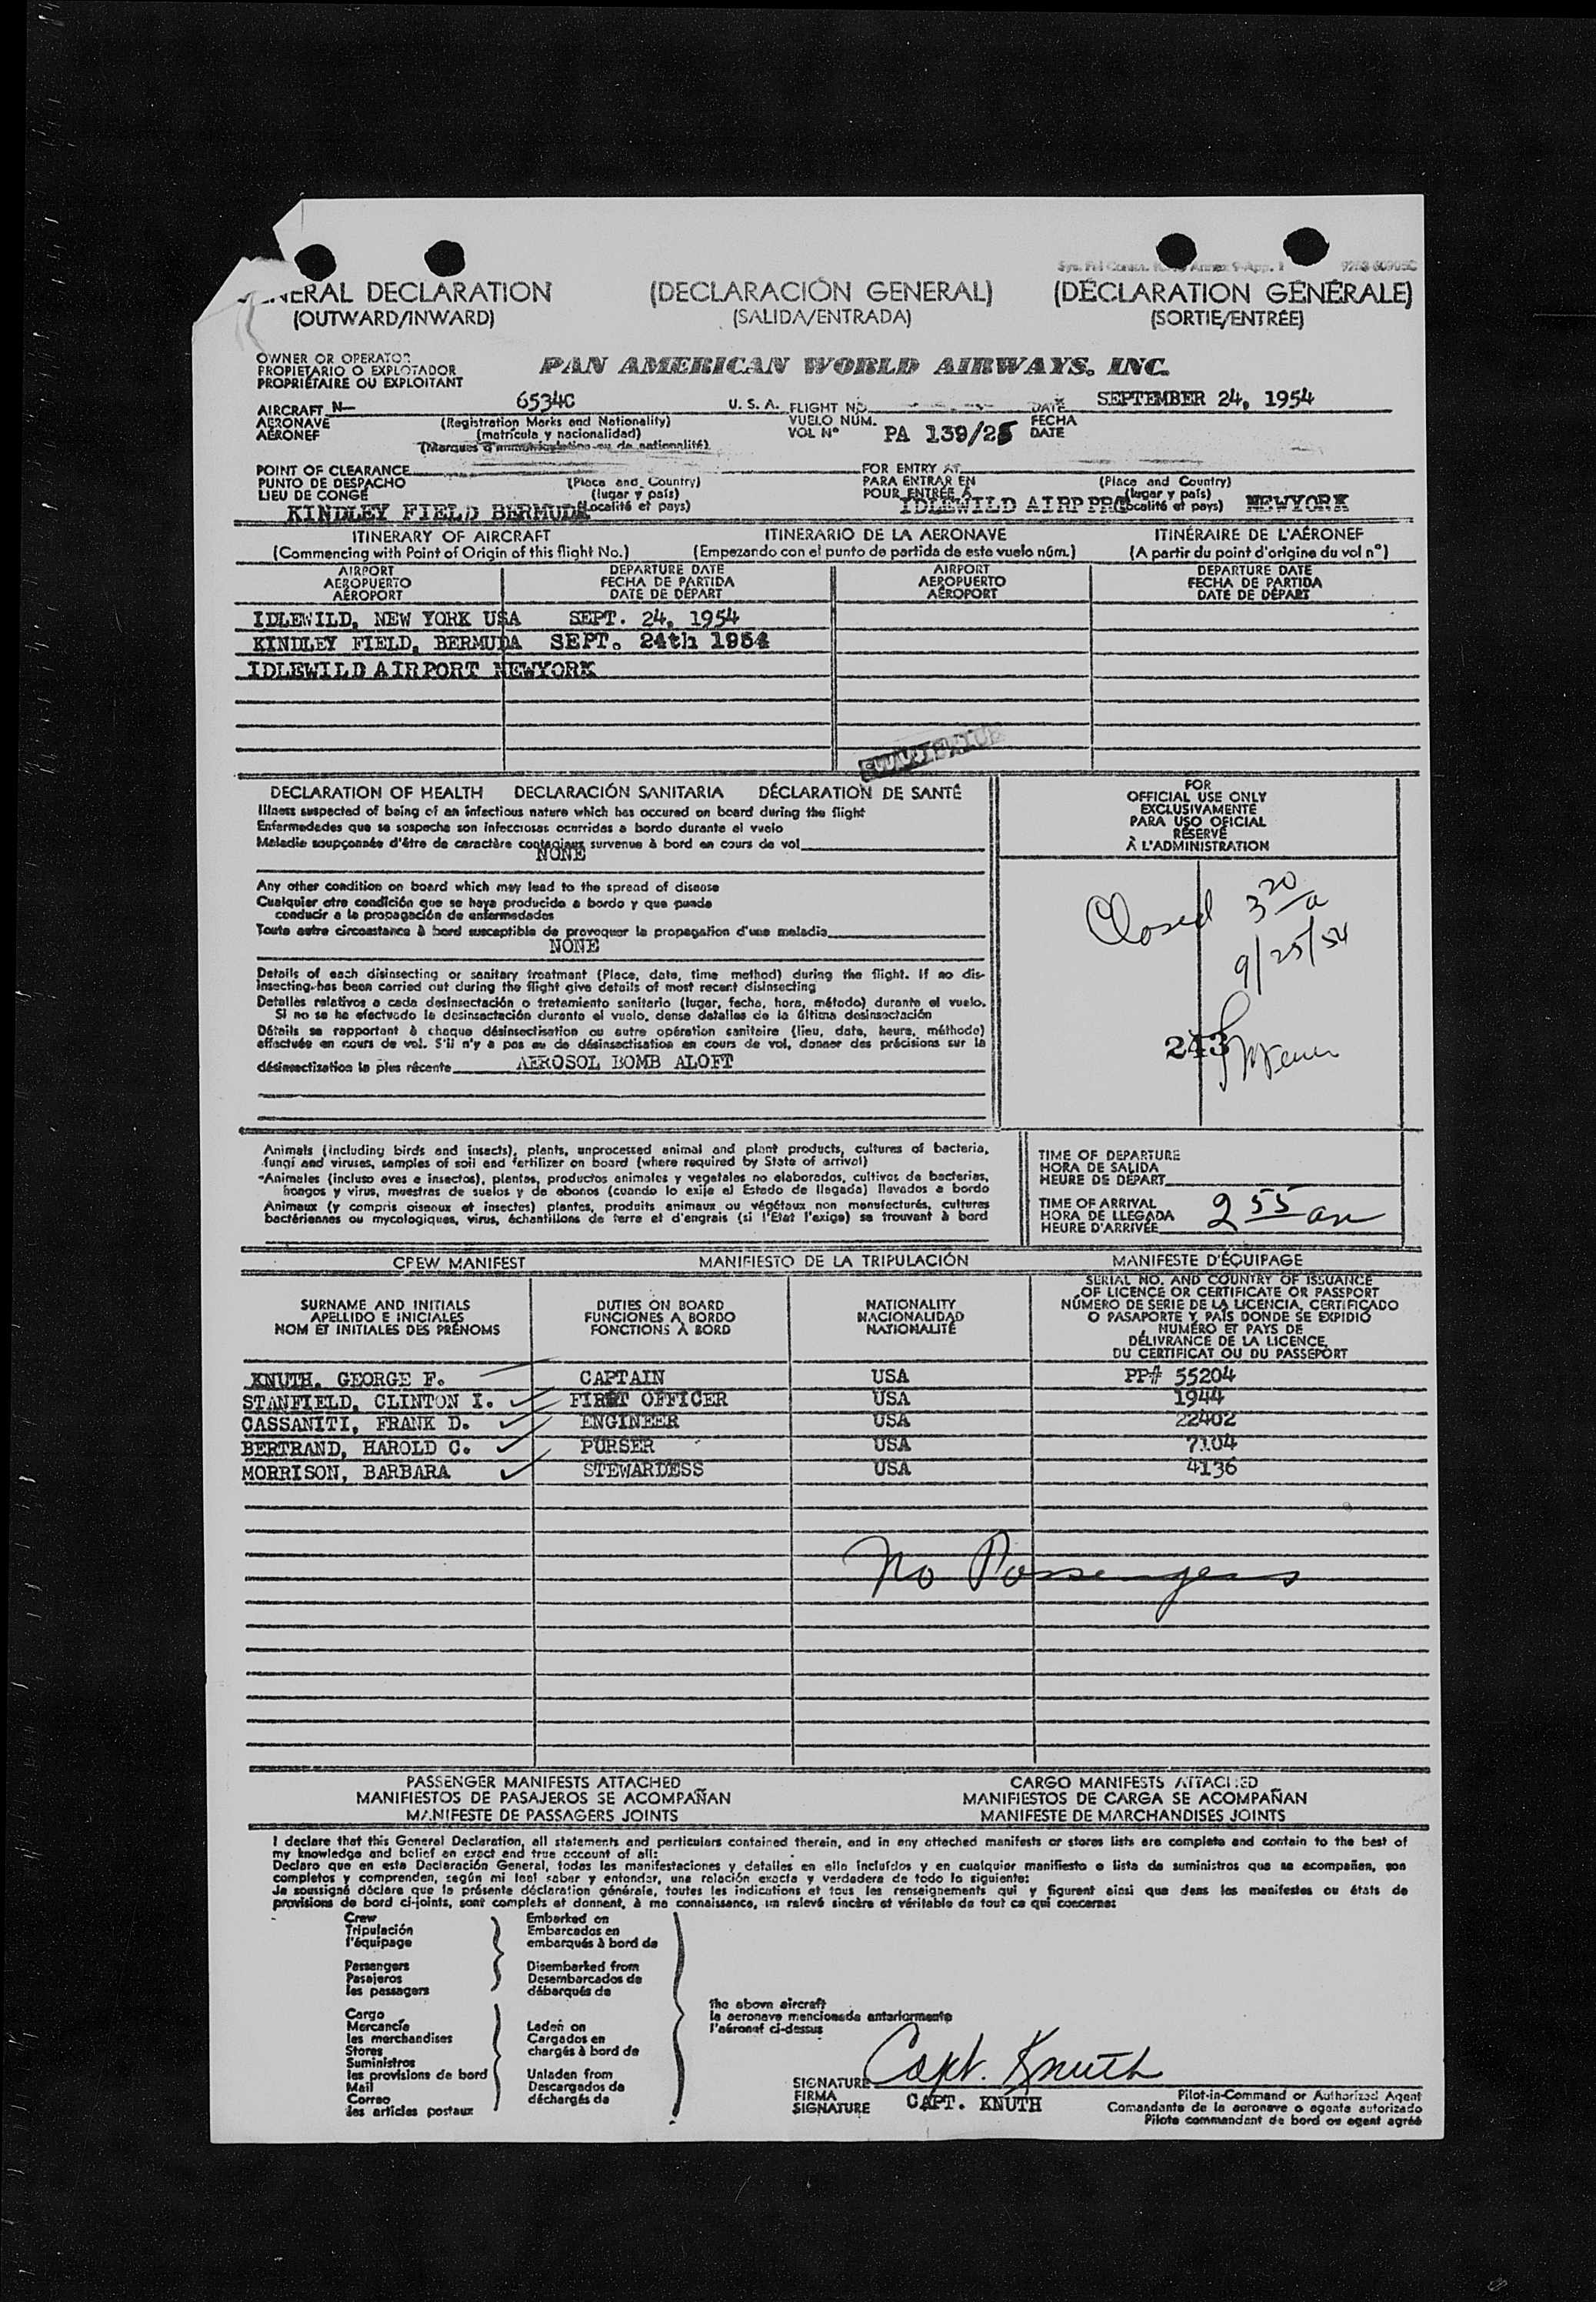 GENERAL DECLARATION (DECLARACIÓN GENERAL) (DÉCLARATION GÉNÉRALE)
(OUTWARD/INWARD) (SALIDA/ENTRADA) (SORTIE/ENTRÉE)
OWNER OR OPERATOR
PROPIETARIO O EXPLOTADOR
PROPRIÉTAIRE OU EXPLOITANT
PAN AMERICAN WORLD AIRWAYS, INC.
AIRCRAFT N— 6534C U. S. A. FLIGHT NO. DATE SEPTEMBER 24, 1954
AERONAVE (Registration Marks and Nationality) VUELO NUM. FECHA
AÉRONEF (matrícula y nacionalidad) VOL Nº PA 139/25 DATE
(Marques d'immatriculation ou de nationalité)
POINT OF CLEARANCE FOR ENTRY AT
PUNTO DE DESPACHO (Place and Country) PARA ENTRAR EN (Place and Country)
LIEU DE CONGÉ (lugar y país) POUR ENTRÉE À (lugar y país)
KINDLEY FIELD BERMUDA (Localité et pays) IDLEWILD AIRP (Localité et pays) NEWYORK
ITINERARY OF AIRCRAFT ITINERARIO DE LA AERONAVE ITINÉRAIRE DE L'AÉRONEF
(Commencing with Point of Origin of this flight No.) (Empezando con el punto de partida de este vuelo núm.) (A partir du point d'origine du vol nº)
AIRPORT DEPARTURE DATE AIRPORT DEPARTURE DATE
AEROPUERTO FECHA DE PARTIDA AEROPUERTO FECHA DE PARTIDA
AÉROPORT DATE DE DÉPART AÉROPORT DATE DE DÉPART
IDLEWILD, NEW YORK USA SEPT. 24, 1954
KINDLEY FIELD, BERMUDA SEPT. 24th 1954
IDLEWILD AIRPORT NEWYORK
DECLARATION OF HEALTH DECLARACIÓN SANITARIA DÉCLARATION DE SANTÉ
Illness suspected of being of an infectious nature which has occured on board during the flight
Enfermedades que se sospecha son infecciosas ocurridas a bordo durante el vuelo
Maladie soupçonnée d'être de caractère contagieux survenue à bord en cours de vol
NONE
Any other condition on board which may lead to the spread of disease
Cualquier otra condición que se haya producido a bordo y que pueda
conducir a la propagación de enfermedades
Toute autre circonstance à bord susceptible de provoquer la propagation d'une maladie
NONE
Details of each disinsecting or sanitary treatment (Place, date, time method) during the flight. If no dis-
insecting has been carried out during the flight give details of most recent disinsecting
Detalles relativos a cada desinsectación o tratamiento sanitario (lugar, fecha, hora, método) durante el vuelo.
Si no se ha efectuado la desinsectación durante el vuelo, dense detalles de la última desinsectación
Détails se rapportant à chaque désinsectisation ou autre opération sanitaire (lieu, date, heure, méthode)
effectuée en cours de vol. S'il n'y a pas eu de désinsectisation en cours de vol, donner des précisions sur la
désinsectisation la plus récente AEROSOL BOMB ALOFT
FOR
OFFICIAL USE ONLY
EXCLUSIVAMENTE
PARA USO OFICIAL
RÉSERVÉ
À L'ADMINISTRATION
Closed 3 20 a
9/25/54
243
Animals (including birds and insects), plants, unprocessed animal and plant products, cultures of bacteria,
fungi and viruses, samples of soil and fertilizer on board (where required by State of arrival)
Animales (incluso aves e insectos), plantas, productos animales y vegetales no elaborados, cultivos de bacterias,
hongos y virus, muestras de suelos y de abonos (cuando lo exija el Estado de llegada) llevados a bordo
Animaux (y compris oiseaux et insectes) plantes, produits animaux ou végétaux non manufacturés, cultures
bactériennes ou mycologiques, virus, échantillons de terre et d'engrais (si l'État l'exige) se trouvant à bord
TIME OF DEPARTURE
HORA DE SALIDA
HEURE DE DÉPART
TIME OF ARRIVAL
HORA DE LLEGADA 2 55 am
HEURE D'ARRIVÉE
CREW MANIFEST MANIFIESTO DE LA TRIPULACIÓN MANIFESTE D'ÉQUIPAGE
SURNAME AND INITIALS
APELLIDO E INICIALES
NOM ET INITIALES DES PRÉNOMS
DUTIES ON BOARD
FUNCIONES A BORDO
FONCTIONS À BORD
NATIONALITY
NACIONALIDAD
NATIONALITÉ
SERIAL NO. AND COUNTRY OF ISSUANCE
OF LICENCE OR CERTIFICATE OR PASSPORT
NÚMERO DE SERIE DE LA LICENCIA, CERTIFICADO
O PASAPORTE Y PAÍS DONDE SE EXPIDIÓ
NUMÉRO ET PAYS DE
DÉLIVRANCE DE LA LICENCE,
DU CERTIFICAT OU DU PASSEPORT
KNUTH, GEORGE F. CAPTAIN USA PP# 55204
STANFIELD, CLINTON I. FIRST OFFICER USA 1944
CASSANITI, FRANK D. ENGINEER USA 22402
BERTRAND, HAROLD C. PURSER USA 7104
MORRISON, BARBARA STEWARDESS USA 4136
No Passengers
PASSENGER MANIFESTS ATTACHED CARGO MANIFESTS ATTACHED
MANIFIESTOS DE PASAJEROS SE ACOMPAÑAN MANIFIESTOS DE CARGA SE ACOMPAÑAN
MANIFESTE DE PASSAGERS JOINTS MANIFESTE DE MARCHANDISES JOINTS
I declare that this General Declaration, all statements and particulars contained therein, and in any attached manifests or stores lists are complete and contain to the best of
my knowledge and belief an exact and true account of all:
Declaro que en esta Declaración General, todas las manifestaciones y detalles en ella incluídos y en cualquier manifiesto o lista de suministros que se acompañen, son
completos y comprenden, según mi leal saber y entender, una relación exacta y verdadera de todo lo siguiente:
Je soussigné déclare que la présente déclaration générale, toutes les indications et tous les renseignements qui y figurent ainsi que dans les manifestes ou états de
provisions de bord ci-joints, sont complets et donnent, à ma connaissance, un relevé sincère et véritable de tout ce qui concerne:
Crew Embarked on
Tripulación Embarcados en
l'équipage embarqués à bord de
Passengers Disembarked from
Pasajeros Desembarcados de
les passagers débarqués de
the above aircraft
la aeronave mencionada anteriormente
l'aéronef ci-dessus
Cargo
Mercancía Laden on
les marchandises Cargados en
Stores chargés à bord de
Suministros
les provisions de bord Unladen from
Mail Descargados de
Correo déchargés de
les articles postaux
SIGNATURE Capt. Knuth
FIRMA
SIGNATURE CAPT. KNUTH
Pilot-in-Command or Authorized Agent
Comandante de la aeronave o agente autorizado
Pilote commandant de bord ou agent agréé